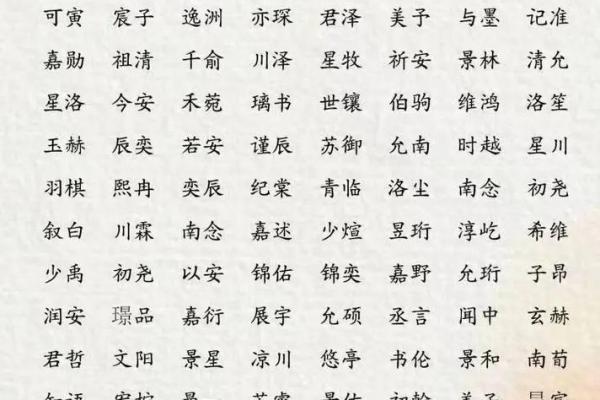 可寅 宸子 逸洲 亦琛 君泽 美予 与墨 记准
嘉勋 祖清 千俞 川泽 星牧 祈安 景林 清允
星洛 今安 禾菀 璃书 世镶 伯驹 维鸿 洛笙
玉赫 辰奕 若安 谨辰 苏御 允南 时越 星川
羽棋 熙冉 奕辰 纪棠 青临 洛尘 南念 初尧
叙白 川霖 南念 嘉述 少煊 昱珩 淳屹 希维
少禹 初尧 以安 锦佑 锦奕 嘉野 允珩 子昂
润安 璟品 嘉衍 展宇 允硕 丞言 闻中 玄赫
君哲 文阳 景星 凉川 悠亭 书伦 景和 南荀